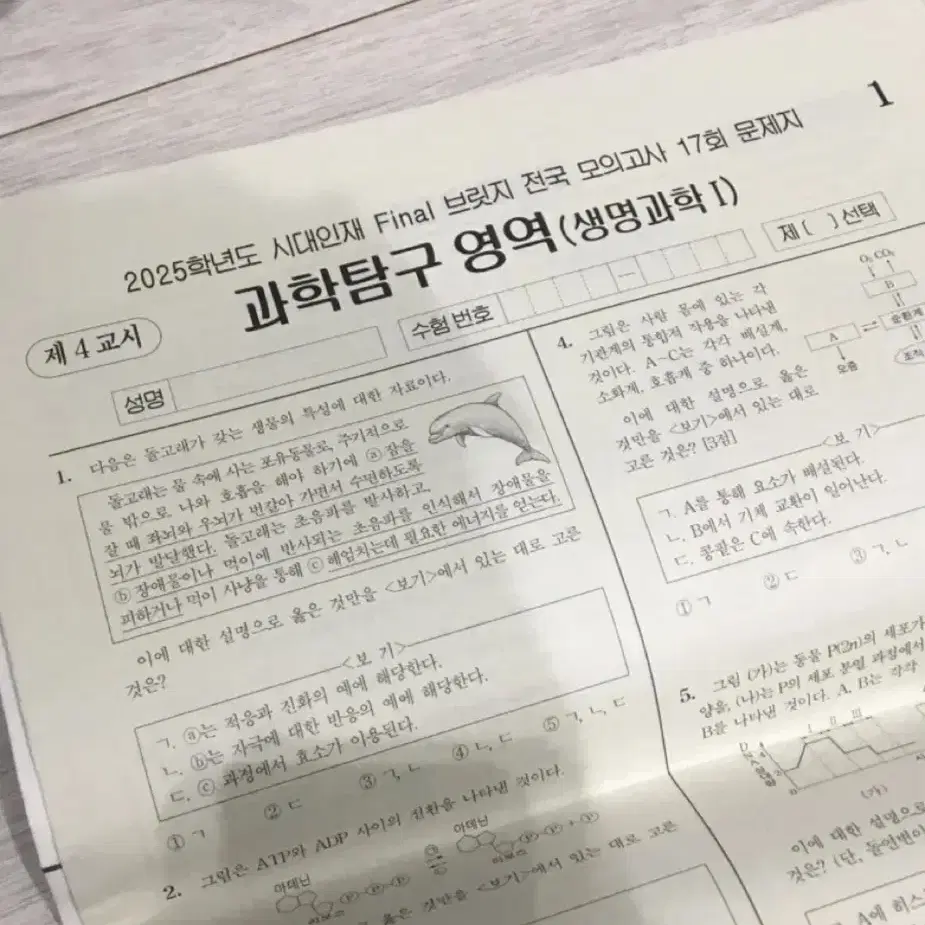 1
2025학년도 시대인재 Final 브릿지 전국 모의고사 17회 문제지
과학탐구 영역(생명과학 I)
제 4 교시
성명
수험 번호
제 ( ) 선택
1. 다음은 돌고래가 갖는 생물의 특성에 대한 자료이다.
돌고래는 물 속에 사는 포유동물로, 주기적으로
물 밖으로 나와 호흡을 해야 하기에 ⓐ 잠을
잘 때 좌뇌와 우뇌가 번갈아 가면서 수면하도록
뇌가 발달했다. 돌고래는 초음파를 발사하고,
ⓑ 장애물이나 먹이에 반사되는 초음파를 인식해서 장애물을
피하거나 먹이 사냥을 통해 ⓒ 헤엄치는데 필요한 에너지를 얻는다.
이에 대한 설명으로 옳은 것만을 <보기>에서 있는 대로 고른
것은?
<보 기>
ㄱ. ⓐ는 적응과 진화의 예에 해당한다.
ㄴ. ⓑ는 자극에 대한 반응의 예에 해당한다.
ㄷ. ⓒ 과정에서 효소가 이용된다.
① ㄱ ② ㄷ ③ ㄱ, ㄴ ④ ㄴ, ㄷ ⑤ ㄱ, ㄴ, ㄷ
2. 그림은 ATP와 ADP 사이의 전환을 나타낸 것이다.
아데닌
P P P
ⓐ
아데닌
P P + P
옳은 것만을 <보기>에서 있는 대로 고른
4. 그림은 사람 몸에 있는 각
기관계의 통합적 작용을 나타낸
것이다. A~C는 각각 배설계,
소화계, 호흡계 중 하나이다.
O₂ CO₂
B
A
순환계
요소
조직
이에 대한 설명으로 옳은
것만을 <보기>에서 있는 대로
고른 것은? [3점]
<보 기>
ㄱ. A를 통해 요소가 배설된다.
ㄴ. B에서 기체 교환이 일어난다.
ㄷ. 콩팥은 C에 속한다.
① ㄱ ② ㄷ ③ ㄱ, ㄴ
5. 그림 (가)는 동물 P(2n)의 세포가
(나)는 P의 세포 분열 과정에서
B를 나타낸 것이다. A, B는 각각
I II III
(가)
이에 대한 설명으로
것은? (단, 돌연변이
A에 히스